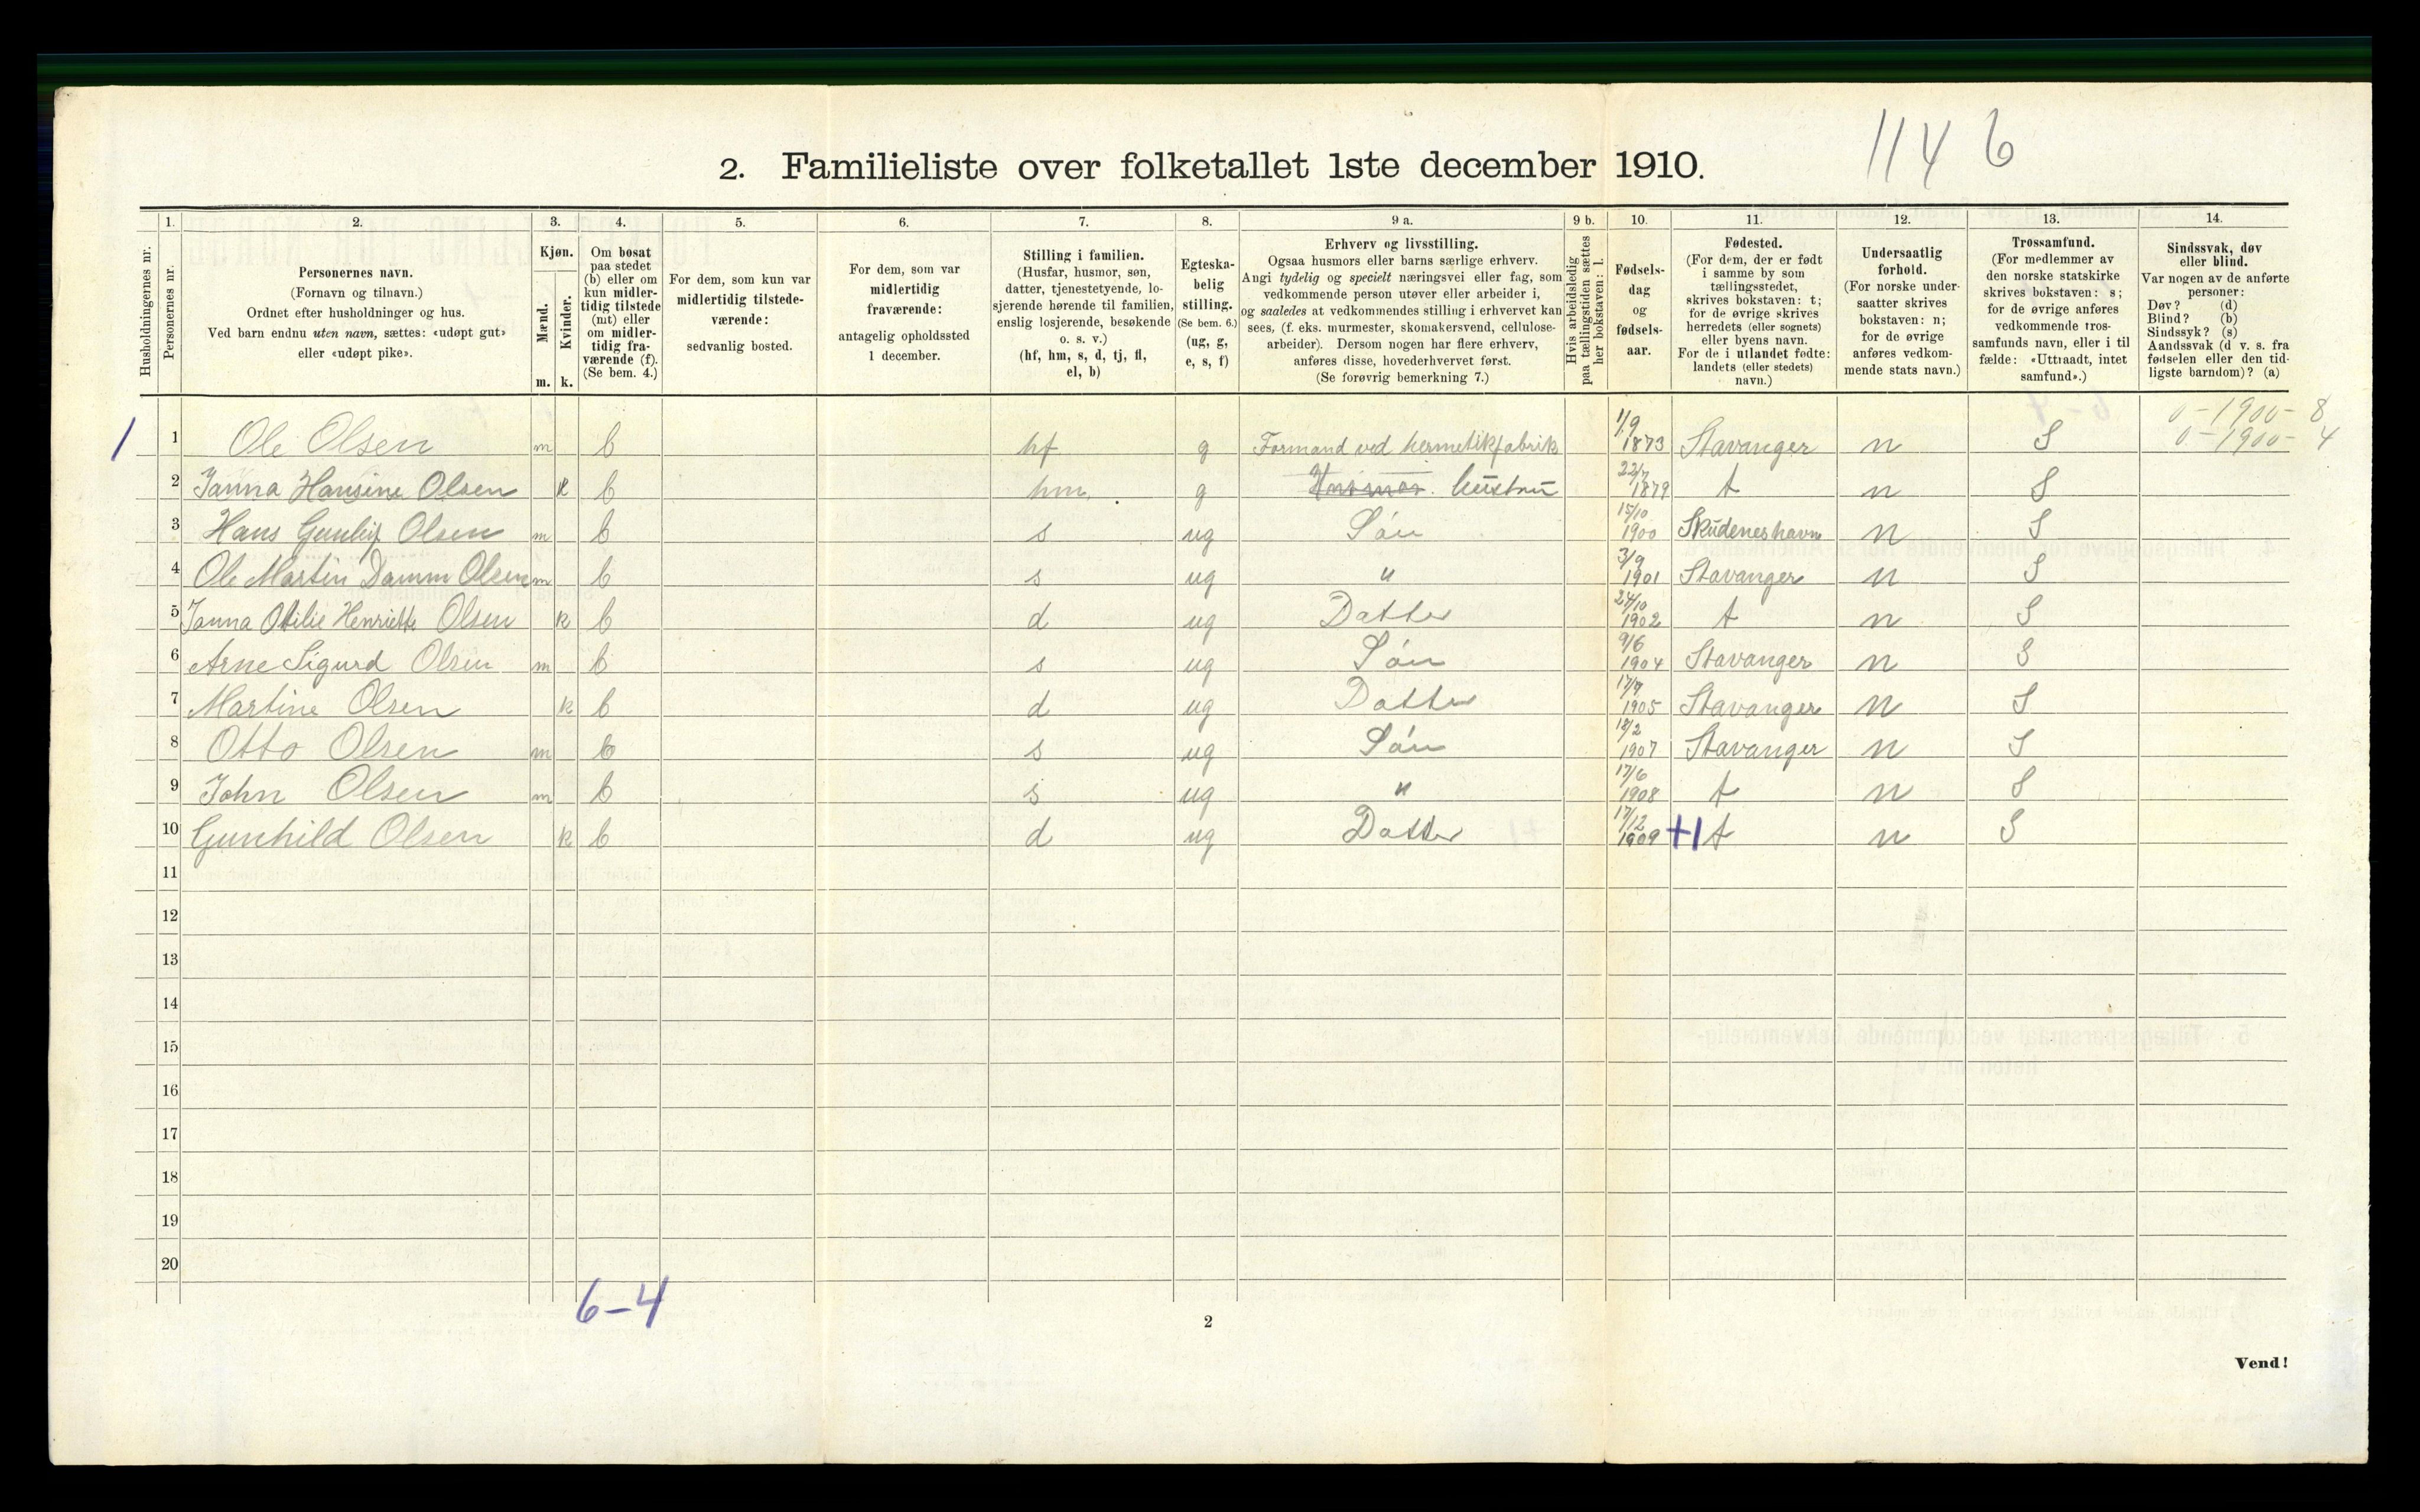 1146
2. Familieliste over folketallet 1ste december 1910.
1. 2. 3. 4. 5. 6. 7. 8. 9 a. 9 b. 10. 11. 12. 13. 14.
Husholdningernes nr.
Personernes nr.
Personernes navn.
(Fornavn og tilnavn.)
Ordnet efter husholdninger og hus.
Ved barn endnu uten navn, sættes: «udøpt gut»
eller «udøpt pike».
Kjøn.
Mænd.
Kvinder.
m. k.
Om bosat
paa stedet
(b) eller om
kun midler-
tidig tilstede
(mt) eller
om midler-
tidig fra-
værende (f).
(Se bem. 4.)
For dem, som kun var
midlertidig tilstede-
værende:
sedvanlig bosted.
For dem, som var
midlertidig
fraværende:
antagelig opholdssted
1 december.
Stilling i familien.
(Husfar, husmor, søn,
datter, tjenestetyende, lo-
sjerende hørende til familien,
enslig losjerende, besøkende
o. s. v.)
(hf, hm, s, d, tj, fl,
el, b)
Egteska-
belig
stilling.
(Se bem. 6.)
(ug, g,
e, s, f)
Erhverv og livsstilling.
Ogsaa husmors eller barns særlige erhverv.
Angi tydelig og specielt næringsvei eller fag, som
vedkommende person utøver eller arbeider i,
og saaledes at vedkommendes stilling i erhvervet kan
sees, (f. eks. murmester, skomakersvend, cellulose-
arbeider). Dersom nogen har flere erhverv,
anføres disse, hovederhvervet først.
(Se forøvrig bemerkning 7.)
Hvis arbeidsledig
paa tællingstiden sættes
her bokstaven: l.
Fødsels-
dag
og
fødsels-
aar.
Fødested.
(For dem, der er født
i samme by som
tællingsstedet,
skrives bokstaven: t;
for de øvrige skrives
herredets (eller sognets)
eller byens navn.
For de i utlandet fødte:
landets (eller stedets)
navn.)
Undersaatlig
forhold.
(For norske under-
saatter skrives
bokstaven: n;
for de øvrige
anføres vedkom-
mende stats navn.)
Trossamfund.
(For medlemmer av
den norske statskirke
skrives bokstaven: s;
for de øvrige anføres
vedkommende tros-
samfunds navn, eller i til
fælde: «Uttraadt, intet
samfund».)
Sindssvak, døv
eller blind.
Var nogen av de anførte
personer:
Døv? (d)
Blind? (b)
Sindssyk? (s)
Aandssvak (d. v. s. fra
fødselen eller den tid-
ligste barndom)? (a)
0-1900-8
0-1900-4
1 1 Ole Olsen m b hf g Formand ved hermetikfabrik 1/9 1873 Stavanger n S
2 Janna Hansine Olsen k b hm g Husmor. hustru 22/7 1879 t n S
3 Hans Gunleif Olsen m b s ug Søn 15/10 1900 Skudeneshavn n S
4 Ole Martin Damm Olsen m b s ug " 3/9 1901 Stavanger n S
5 Janna Otilie Henriette Olsen k b d ug Datter 24/10 1902 t n S
6 Arne Sigurd Olsen m b s ug Søn 9/6 1904 Stavanger n S
7 Martine Olsen k b d ug Datter 17/7 1905 Stavanger n S
8 Otto Olsen m b s ug Søn 12/2 1907 Stavanger n S
9 John Olsen m b s ug " 17/6 1908 t n S
10 Gunhild Olsen k b d ug Datter 17/12 1909 +1 t n S
11
12
13
14
15
16
17
18
19
20
6-4
2
Vend!